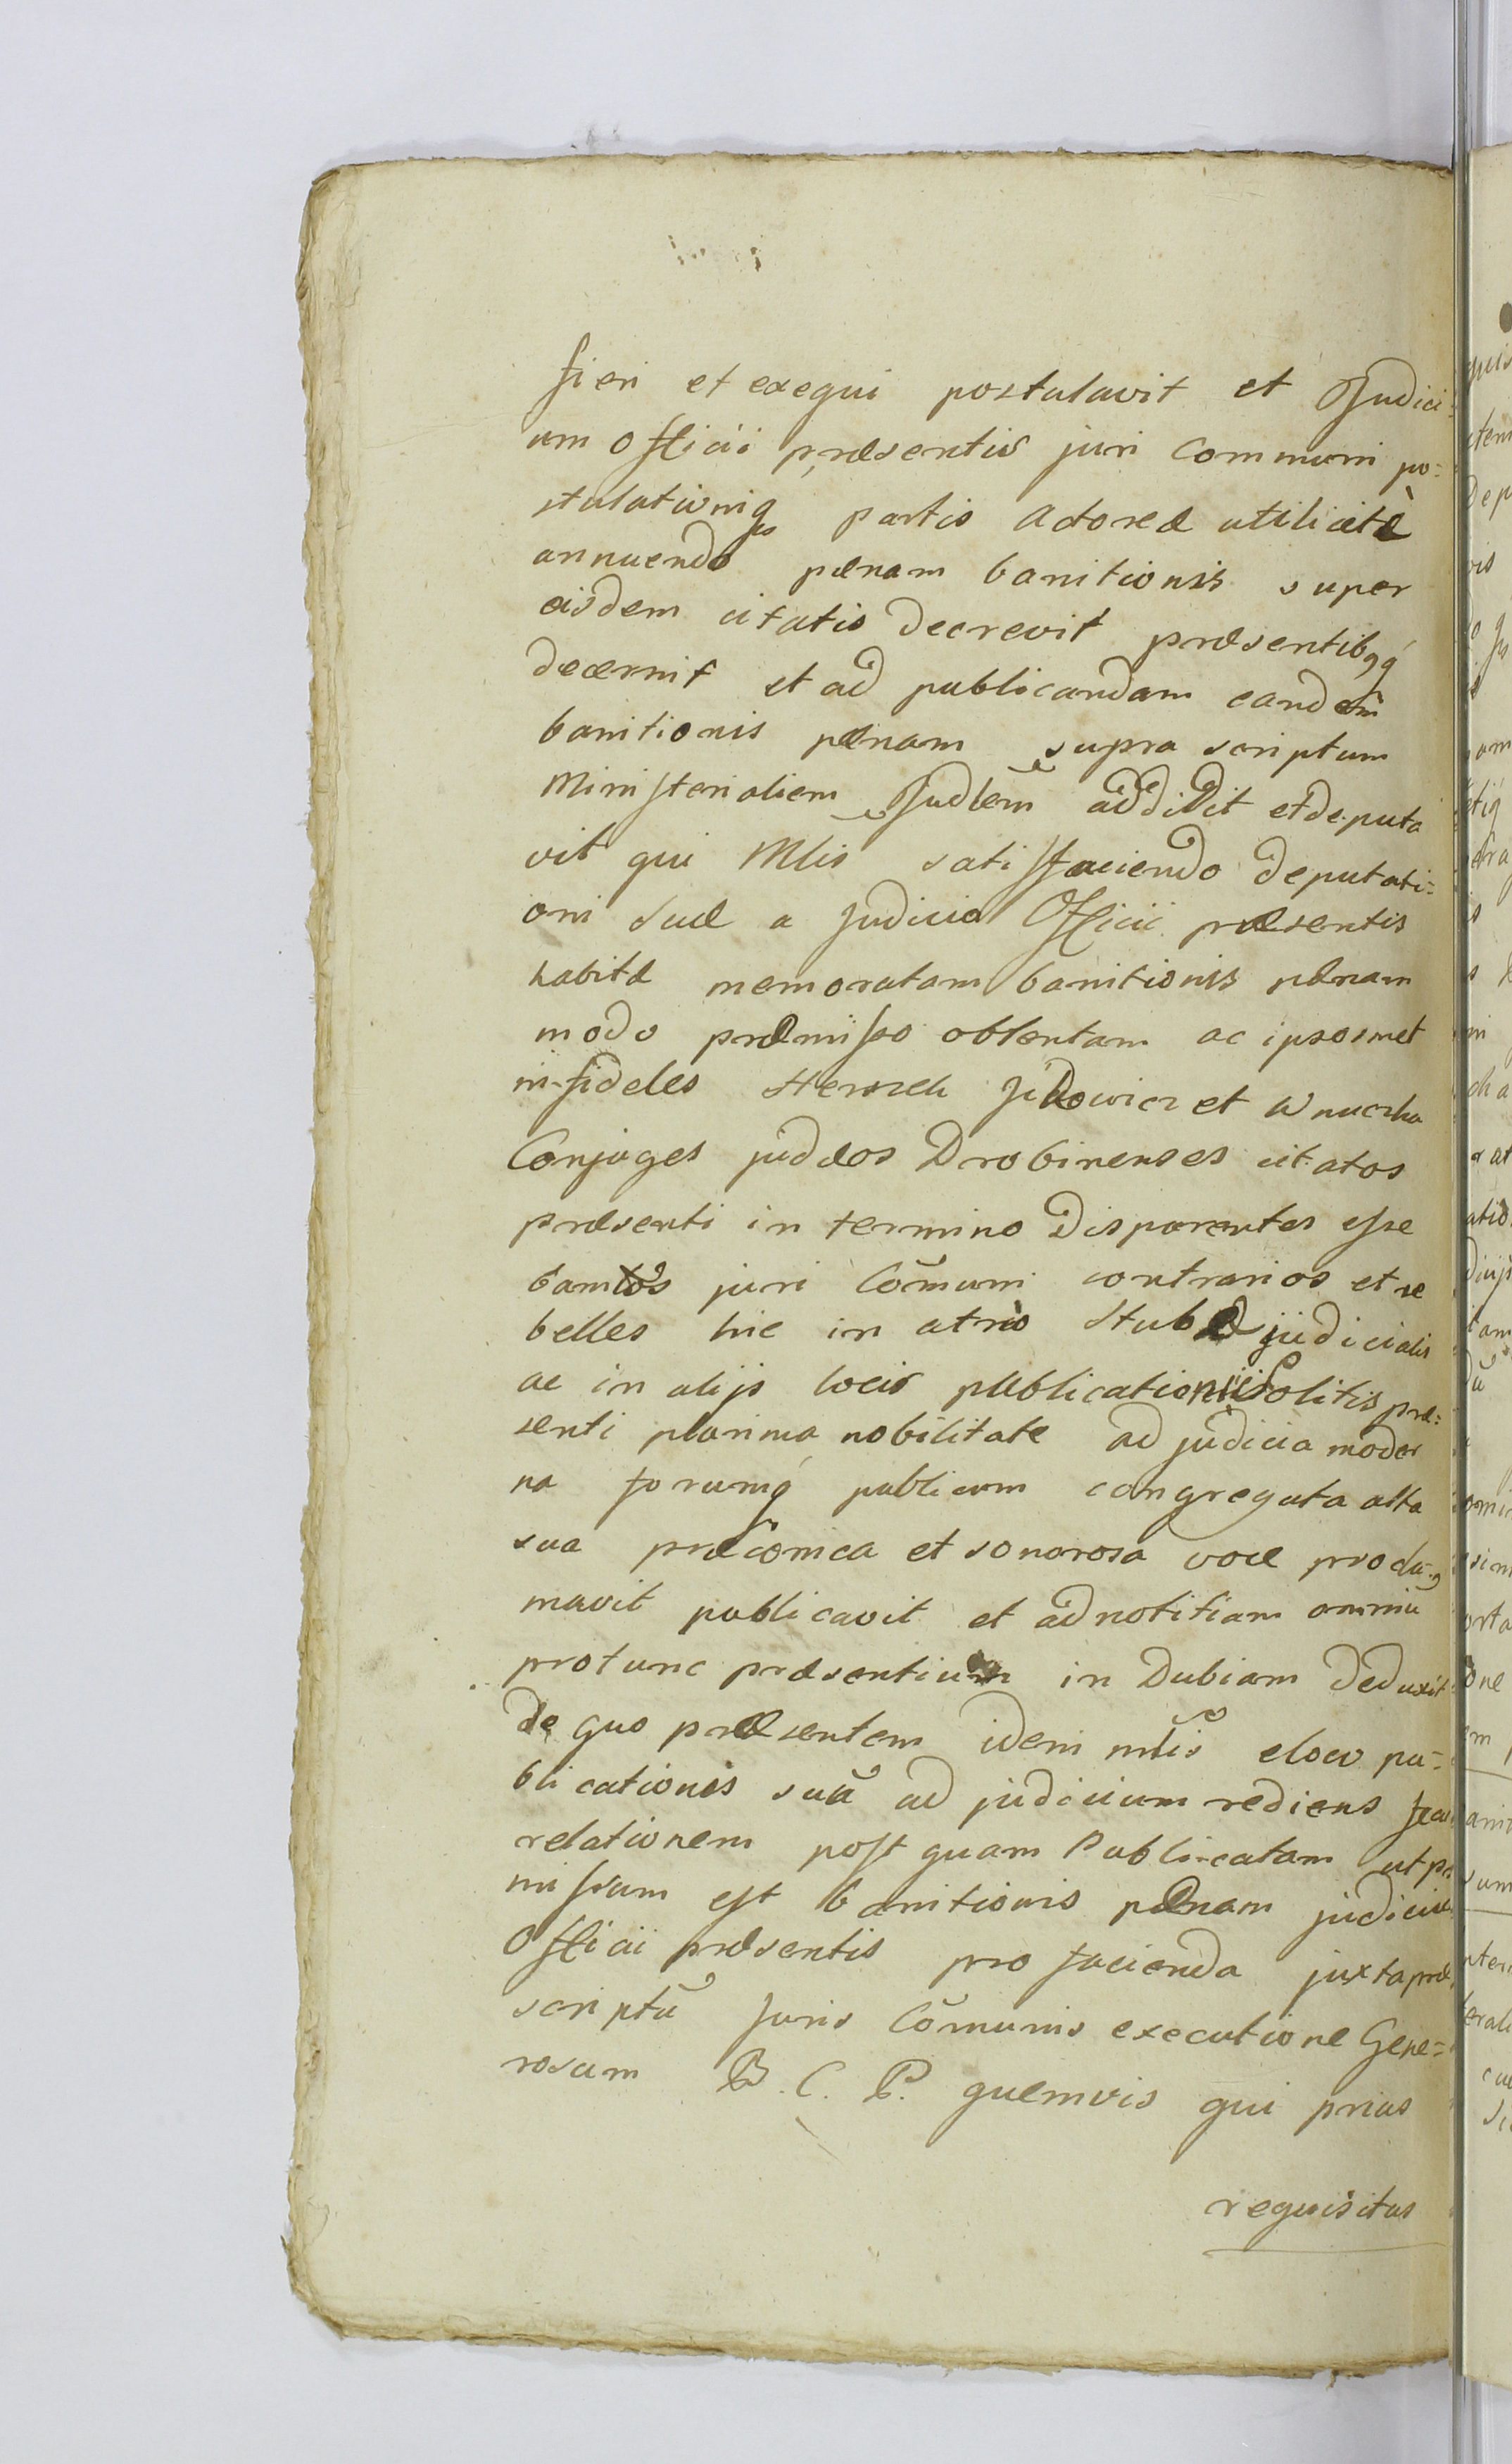 fieri et exequi postulavit et Judici=
um Officii præsentis juri Communi po=
stulationiq partis Actoreæ utilicitæ
annuendo pænam banitionis super
eisdem citatis Decrevit præsentibqq
decernit et ad publicandam eandem̃
banitionis pænam supra scriptum
Ministerialiem Judlem̃ addidit et deputa
vit qui Mlis satisfaciendo deputati=
oni suæ a judicio Officii præsentis
habitæ memoratam banitionis pænam
modo præmisso obtentam ac ipsosmet
infideles Herszek et Wnuczka
Conjuges judæos Drobinenses citatos
præsenti in termino Disparentes esse
banitos juri Com̃uni contrarios et re
belles hic in atrio Stubæ judicialis
ac in alijs locis publicationū solitis præ=
senti plurima nobilitate ad judicia moder
na forumq́ publicum congregata alta
sua præconica et sonorosa voce procla=
mavit publicavit et ad notitiam omniū
protunc præsentium in Dubiam deduxit
de quo præsentem idem mlis̃ eloco pu=
blicationis suã ad judicium rediens feci
relationem post quam Publicatam ut præ
missum est banitionis pænam judicium
Officii præsentis pro facienda juxta præ
scriptũ Juris Com̃unis executione Gene=
rosum B. C. P. quemvis qui prius
requisitus